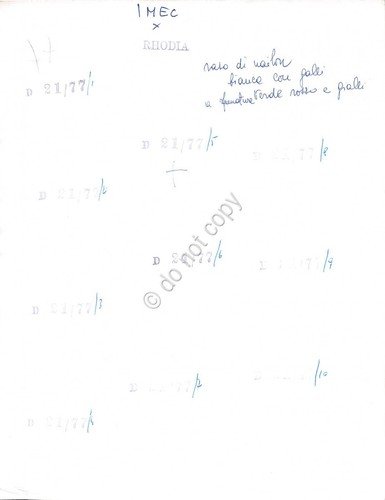 IMEC
x
RHODIA
raso di nailon
bianca con galli
verde rosso e gialli
D 21/77/1
D 21/77/5
D 21/77/8
D 21/77/2
D 21/77/6
D 21/77/9
© do not copy
D 21/77/3
/10
D 21/77/4